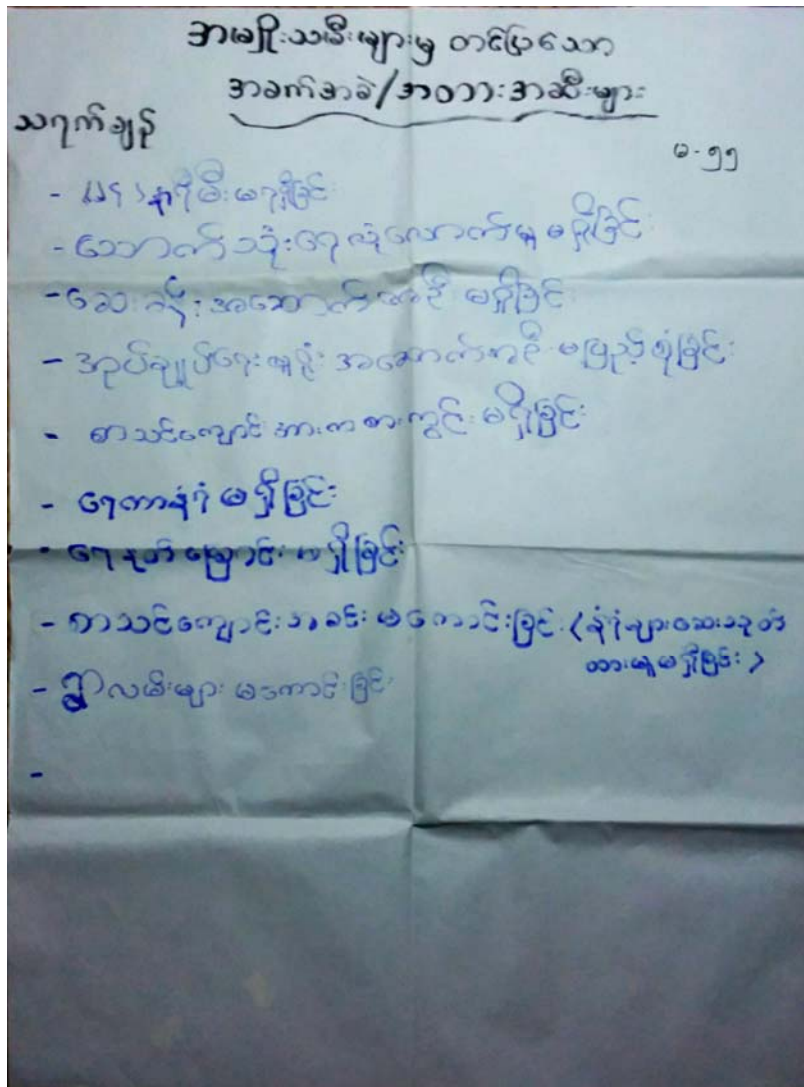 အမျိုးသမီးများမှ တင်ပြသော
အခက်အခဲ/အတားအဆီးများ
သရက်ချဉ်
မ-၅၅
- (၂၄) နာရီမီးမရရှိခြင်း
- သောက်သုံးရေလုံလောက်မှု မရှိခြင်း
- ဆေးခန်းအဆောက်အဦ မရှိခြင်း
- အုပ်ချုပ်ရေးမှူးရုံး အဆောက်အဦ မပြည့်စုံခြင်း
- စာသင်ကျောင်းအားကစားကွင်း မရှိခြင်း
- ရေကာနံရံ မရှိခြင်း
- ရေနုတ်မြောင်း မရှိခြင်း
- စာသင်ကျောင်းအခင်း မကောင်းခြင်း (နံရံများဆေးသုတ်
ထားမှုမရှိခြင်း)
- ရွာလမ်းများ မကောင်းခြင်း
-